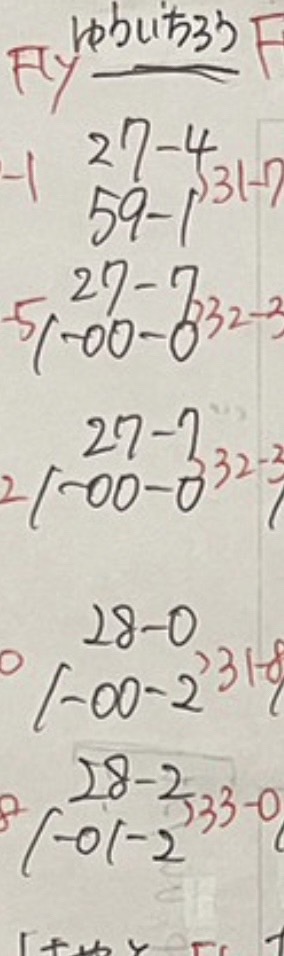 ゆういちろう
Fly
27-4
59-1 31-7
27-7
1-00-0 32-3
27-7
1-00-0 32-3
28-0
1-00-2 31-8
28-2
1-01-2 33-0